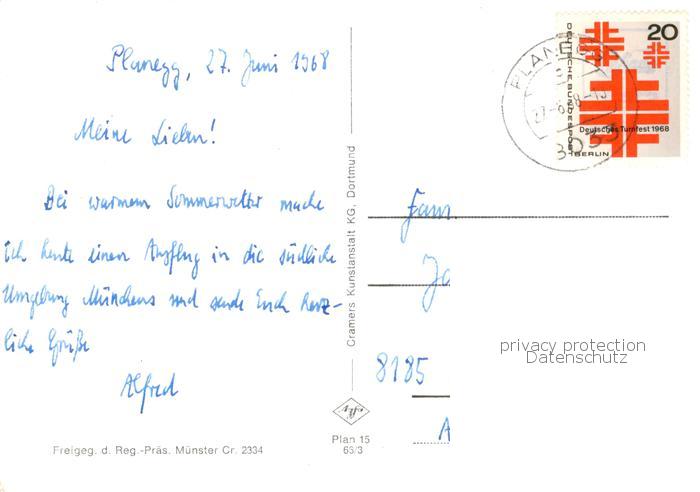 Planegg, 27. Juni 1968
Meine Lieben!
Bei warmem Sommerwetter mache
ich heute einen Ausflug in die südliche
Umgebung Münchens und sende Euch herz-
liche Grüße
Alfred
Freigeg. d. Reg.-Präs. Münster Cr. 2334
Cramers Kunstanstalt KG, Dortmund
Plan 15
66/3
20
DEUTSCHE BUNDESPOST
Deutsches Turnfest 1968
BERLIN
PLANEGG
27.-6.68-19
8033
Fam
Jo
8185
A
privacy protection
Datenschutz